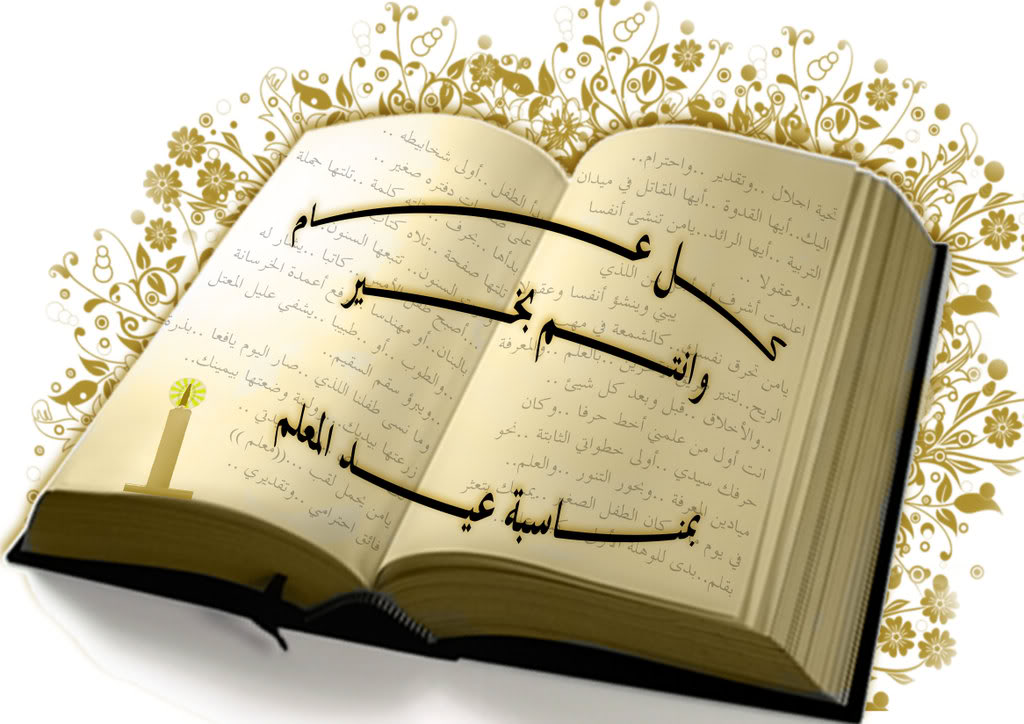 كل عام
وانتم بخير
بمناسبة عيد المعلم
تحية اجلال ..وتقدير ..واحترام..
اليك..أيها القدوة ..أيها المقاتل في ميدان
التربية ..أيها الرائد..يامن تنشئ أنفسا
..وعقولا ..
اعلمت أشرف اللذي
يبني وينشؤ أنفسا وعقولا
يامن تحرق نفسك ..كالشمعة في مهب
الريح..لتنير ..بالعلم ..والمعرفة
..والأخلاق ..قبل وبعد كل شيئ ..
انت أول من علمني أخط حرفا ..وكان
حرفك سيدي ..أولى خطواتي الثابتة ..نحو
ميادين المعرفة ..وبحور التنور ..والعلم..
في يوم كان الطفل الصغير يتعثر
بقلم..بدى للوهلة الأولى
بدأ الطفل ..أولى شخابيطه ..
على دفتره صغير ..
بدأها ..بحرف كلمة ..تلتها جملة
تلتها صفحة ..تلاه كتاب
السنون.. تتبعها السنون
..أصبح طفل الأمس كاتبا
بالبنان..أو مهندسا مع أعمدة الخرسانة
..والطوب ..أو طبيبا ..يشفي عليل المعتل
..ويبرؤ سقم السقيم..
وما نسى طفلنا اللذي ..صار اليوم يافعا ..بذرة
زرعتها بيديك وضعتها بيمينك..
يامن يحمل لقب ...((معلم ))
فائق احترامي ..وتقديري ..